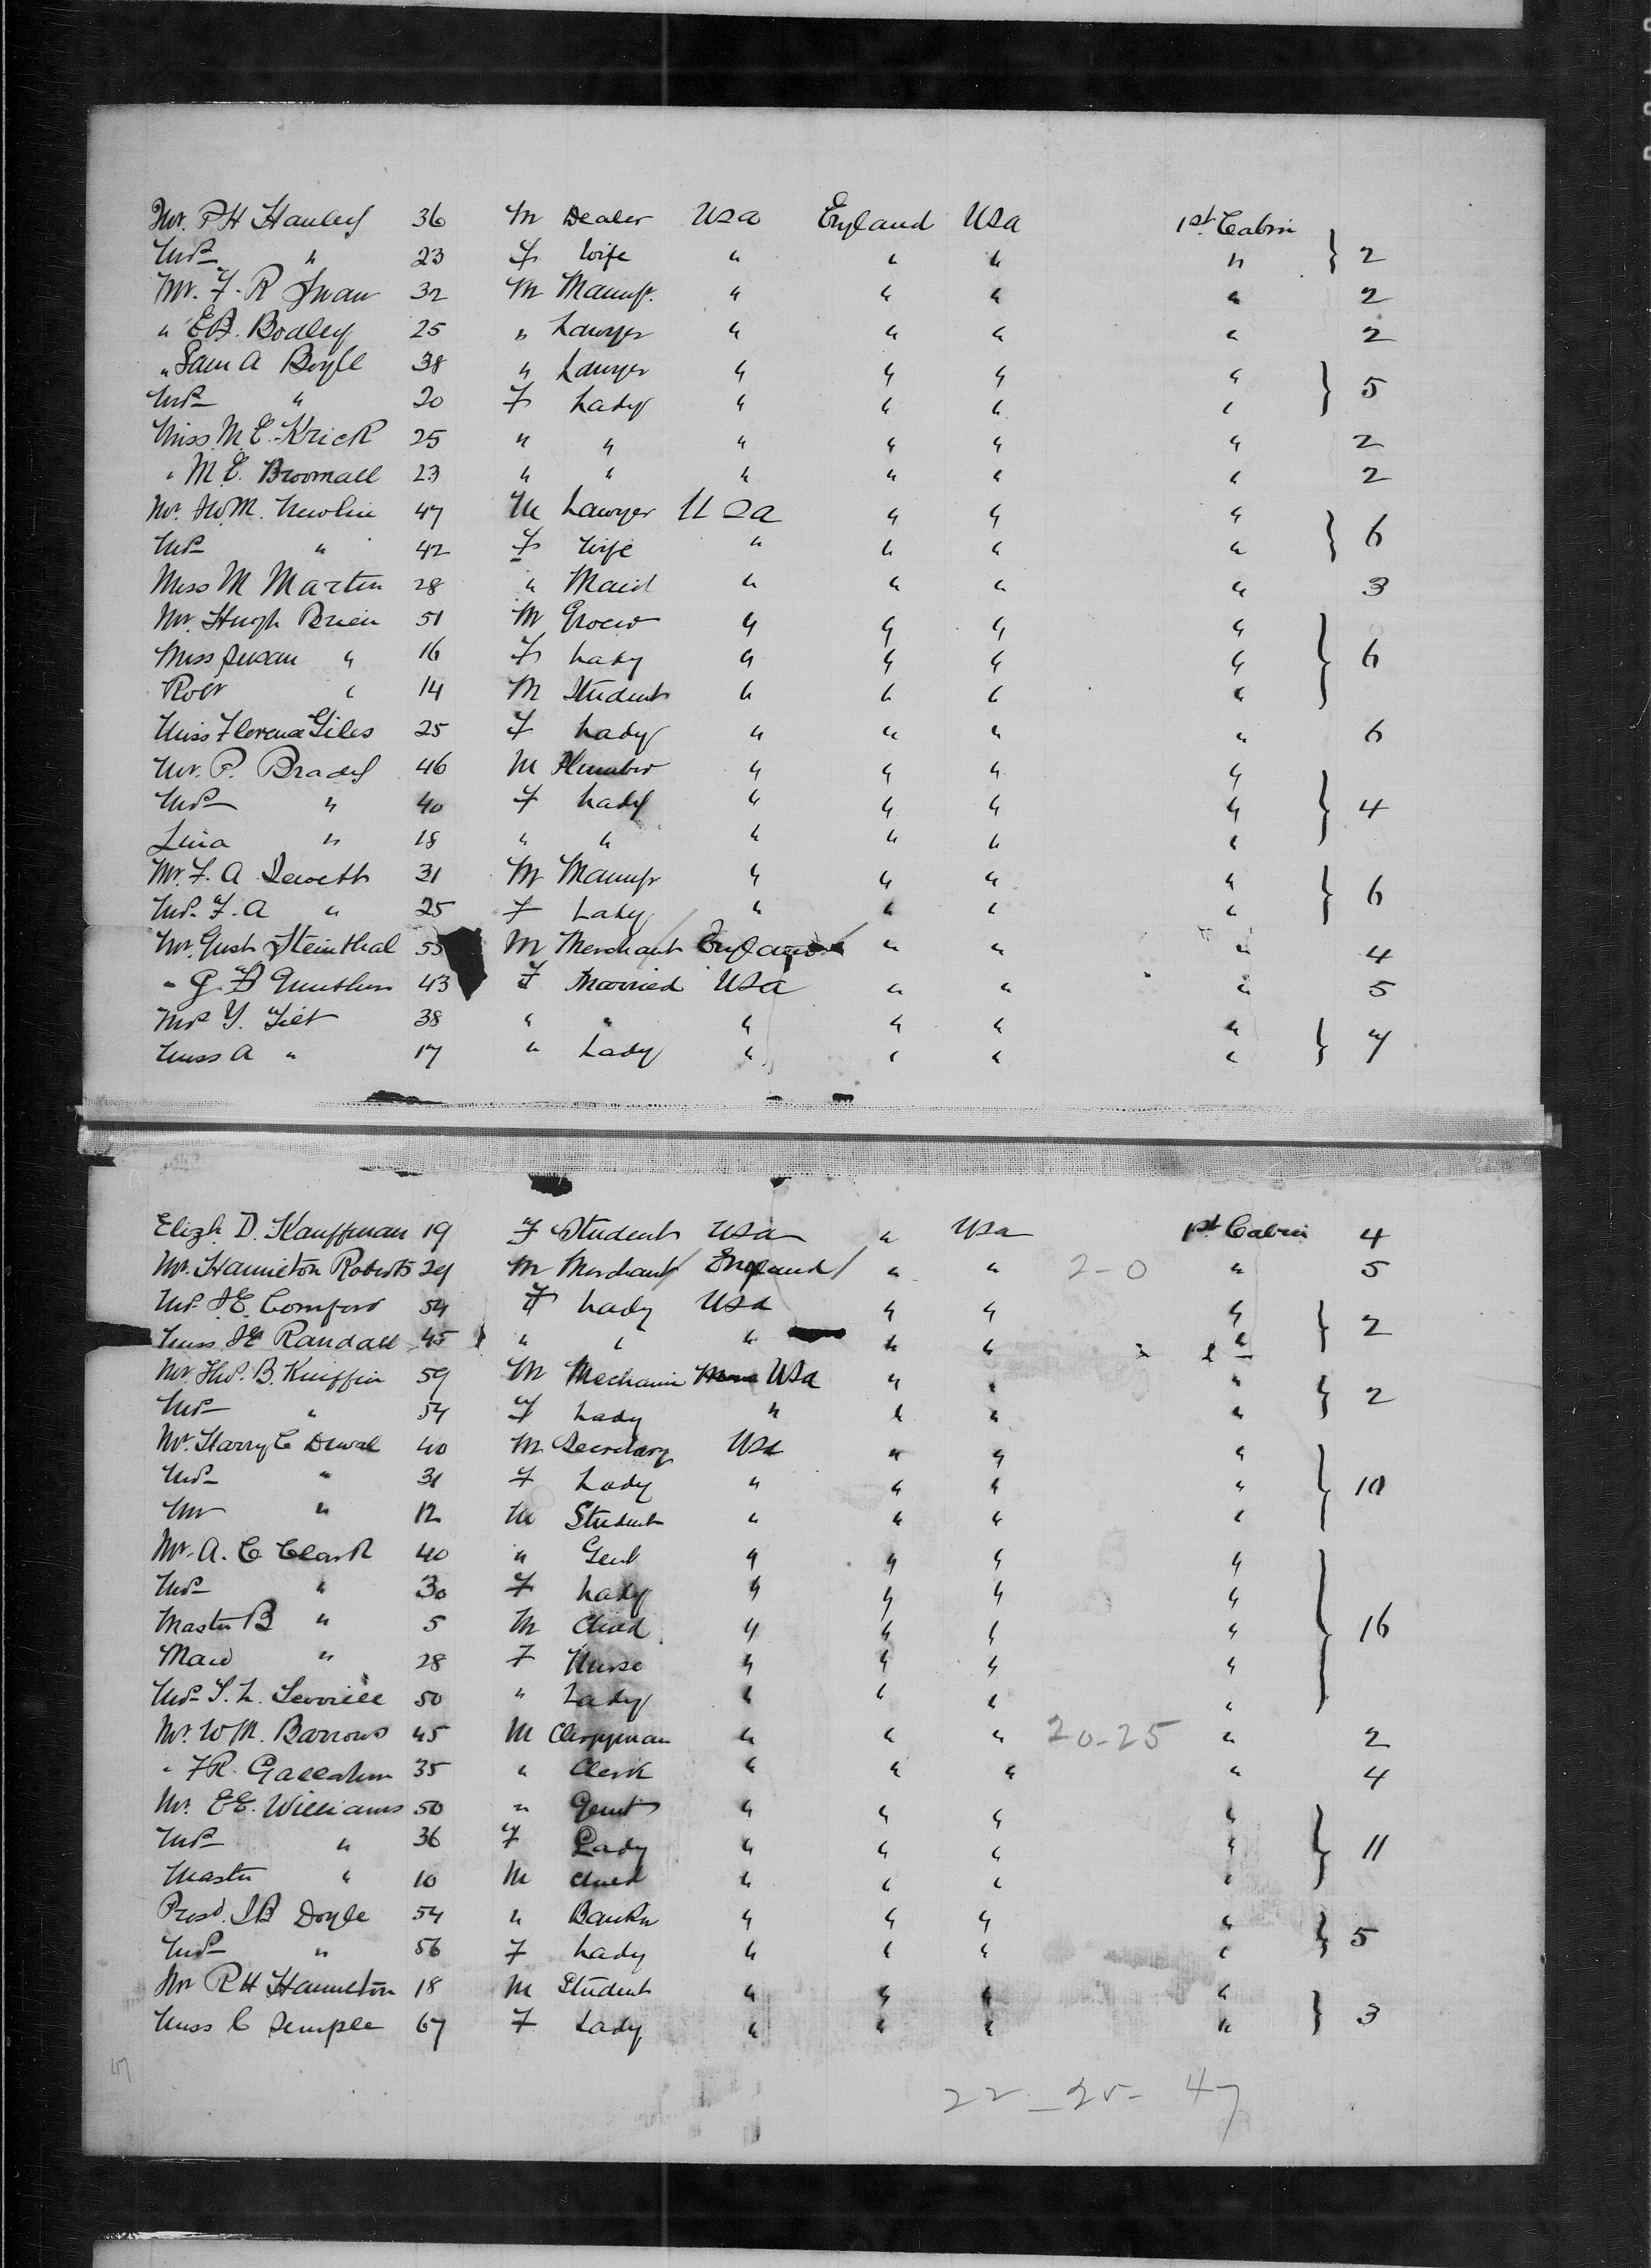 Mr. P H Hanley 36 M Dealer USA England USA 1st Cabin
Mrs " 23 F Wife " " " " } 2
Mr. F. R Swan 32 M Manuf. " " " " 2
" E B. Bodley 25 " Lawyer " " " " 2
" Sam A Boyle 38 " Lawyer " " " "
Mrs " 20 F Lady " " " " } 5
Miss M. E. Krick 25 " " " " " " 2
" M. E. Broomall 23 " " " " " " 2
Mr. J W. M. Newlin 47 M Lawyer USA " " "
Mrs " 42 F Wife " " " " } 6
Miss M Martin 28 " Maid " " " " 3
Mr. Hugh Brien 51 M Grocer " " " "
Miss Susan " 16 F Lady " " " " } 6
Robt " 14 M Student " " " "
Miss Florence Giles 25 F Lady " " " " 6
Mr. P. Brady 46 M Plumber " " " "
Mrs " 40 F Lady " " " " } 4
Lina " 18 " " " " " "
Mr. F. A Jewett 31 M Manufr " " " "
Mrs. F. A " 25 F Lady " " " " } 6
Mr. Gust Steinthal 55 M Merchant England " " " 4
" G. B Gunther 43 F Married USA " " " 5
Mrs Y. Tilt 38 " " " " " "
Miss A " 17 " Lady " " " " } 7
Elizh. D. Kauffman 19 F Student USA " USA 1st Cabin 4
Mr. Hamilton Roberts 24 M Merchant England " " 2-0 " 5
Mrs. J E. Comfort 54 F Lady USA " " "
Miss J E Randall 45 " " " " " " } 2
Mr. Thos. B. Kniffin 59 M Mechanic USA " " "
Mrs " 54 F Lady " " " " } 2
Mr. Harry C Duval 40 M Secretary USA " " "
Mrs " 31 F Lady " " " " } 10
Mr " 12 M Student " " " "
Mr. A. C Clark 40 " Gent " " " "
Mrs " 30 F Lady " " " "
Master B " 5 M Child " " " " } 16
Maid " 28 F Nurse " " " "
Mrs S. L. 50 " Lady " " " "
Mr. W M. Barrows 45 M Clergyman " " " 20-25 " 2
" F R. 35 " Clerk " " " " 4
Mr. E E. Williams 50 " Gent " " " "
Mrs " 36 F Lady " " " " } 11
Master " 10 M Child " " " "
Prest. J B Doyle 54 " Banker " " " "
Mrs " 56 F Lady " " " " } 5
Mr R H Hamilton 18 M Student " " " "
Miss C Semple 67 F Lady " " " " } 3
22-25-47